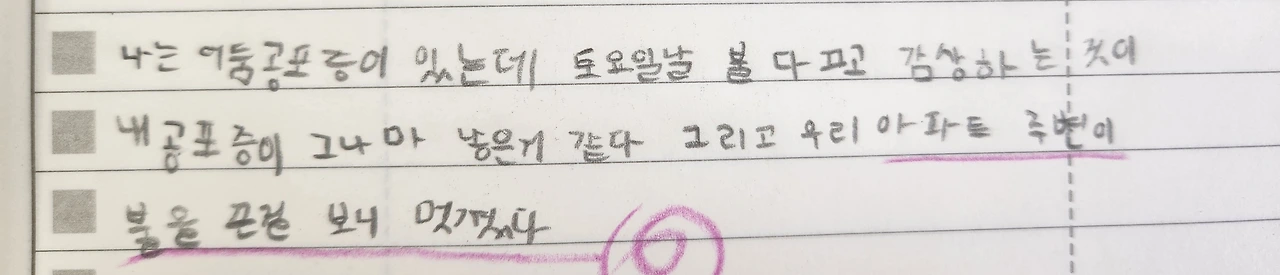 나는 어둠공포증이 있는데 토요일날 불 다 끄고 감상하는 것이
내 공포증이 그나마 낳은거 같다 그리고 우리 아파트 주변이
불을 끈걸 보니 멋졌다